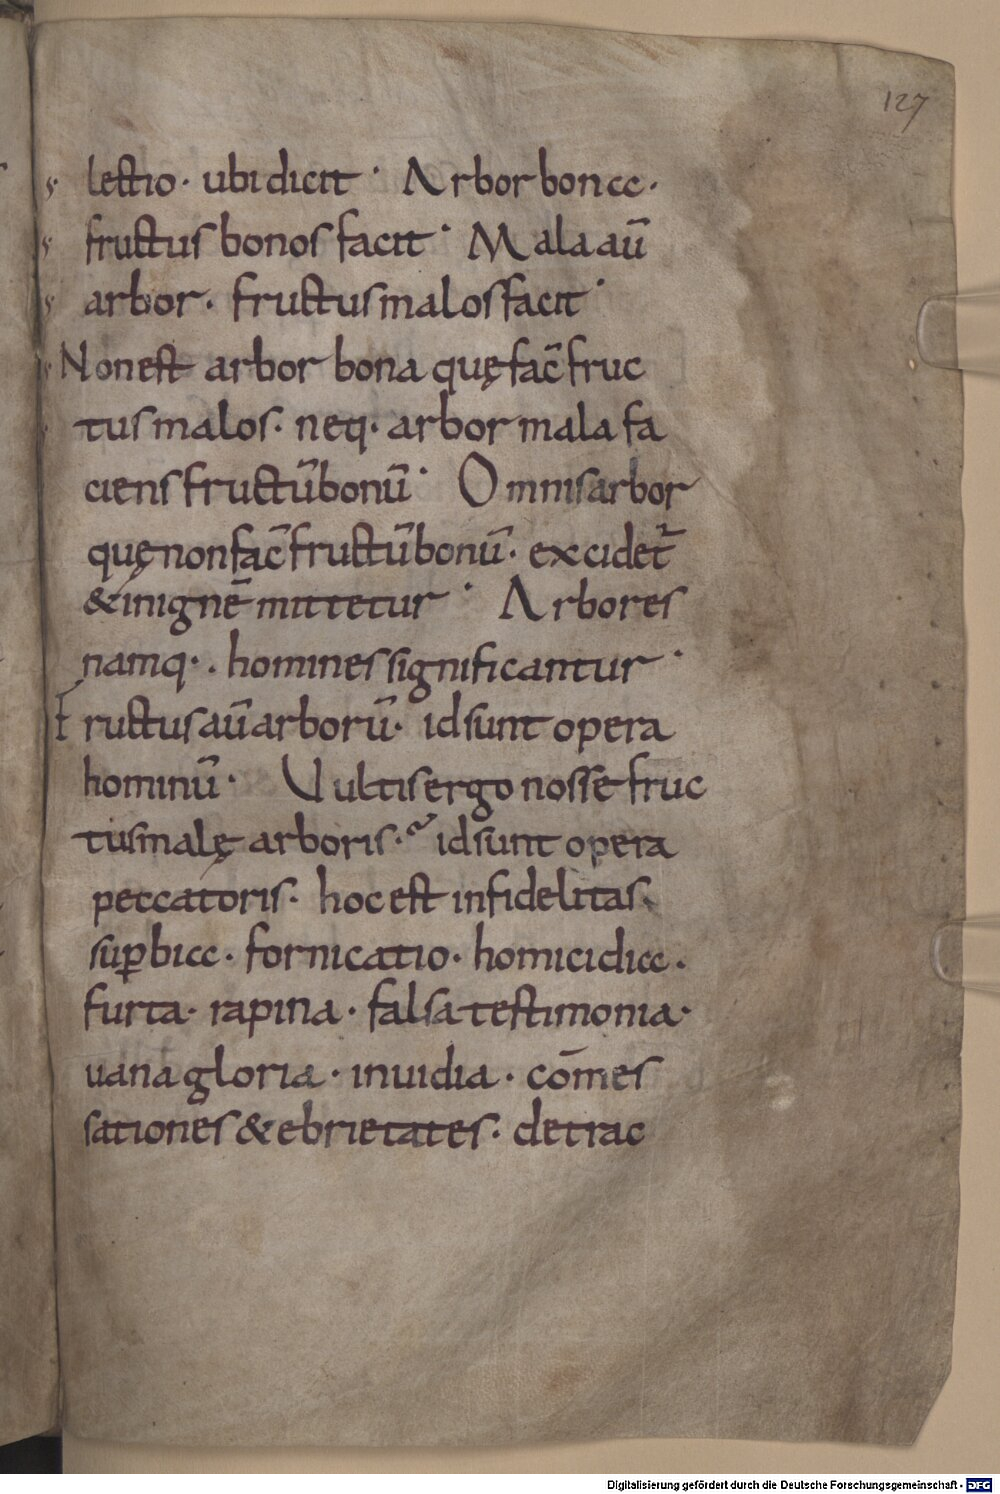 127
lectio · ubi dicit · Arbor bona ·
fructus bonos facit · Mala aū
arbor · fructus malos facit ·
Non est arbor bona quę fac̄ fruc
tus malos · neq· arbor mala fa
ciens fructū bonū · Omnis arbor
quę non fac̄ fructū bonū · excidet̄
& in ignē mittetur · Arbores
namq· · homines significantur ·
Fructus aū arborū · id sunt opera
hominū · Vultis ergo nosse fruc
tus malę arboris · id sunt opera
peccatoris · hoc est infidelitas
suꝑbia · fornicatio · homicidia ·
furta · rapina · falsa testimonia ·
uana gloria · inuidia · cōmes
sationes & ebrietates · detrac
Digitalisierung gefördert durch die Deutsche Forschungsgemeinschaft - DFG